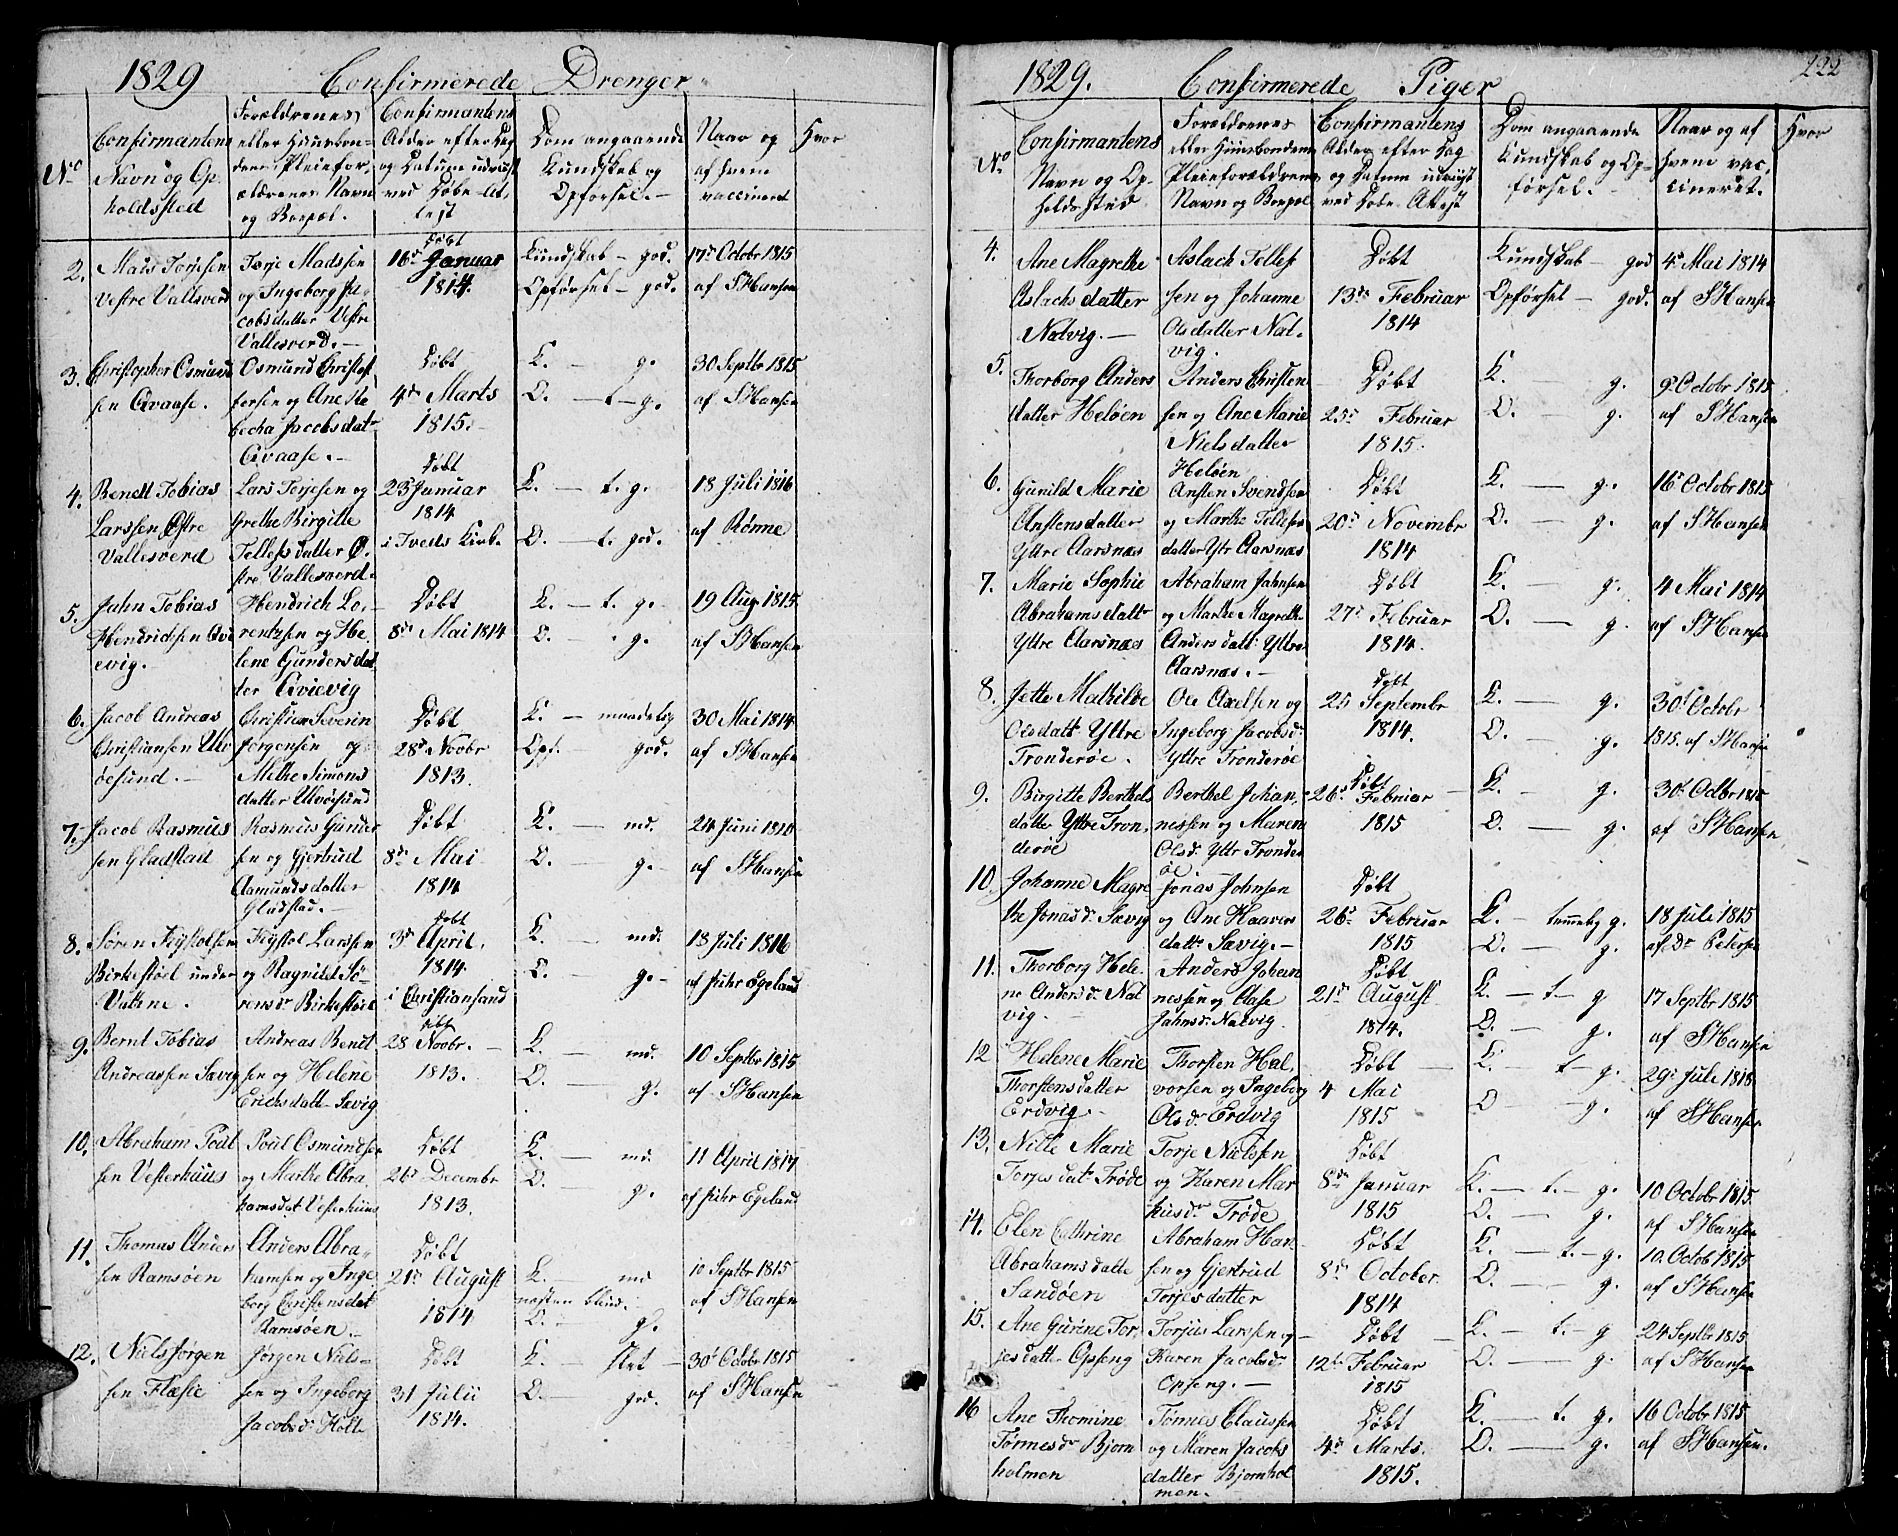 1829 Confirmerede Drenger
No
Confirmantens
Navn og Op-
holdssted
Forældrenes
eller Huusbon-
dens Pleiefor-
ældrenes Navn
og Boepæl.
Confirmantens
Alder efter Dag
og Datum udviist
ved Døbe-At-
test
Dom angaaende
Kundskab og
Opførsel.
Naar og
af hvem
vaccineret
Hvor
2.
Mads Torjesen
Vestre Vallesverd
Torje Madssen
og Ingeborg Ja-
cobsdatter Vestre
Vallesverd.
Døbt
16de Januar
1814.
Kundskab - god.
Opførsel - god.
17de Octobr 1815
af S Hansen
3.
Christopher Osmund
sen Qvaase.
Osmund Christof
fersen og Ane Re
becha Jacobsdatr
Qvaase.
Døbt
4de Marts
1815.
K. - g.
O. - t - g.
30 Septbr 1815
af S Hansen
4.
Bendt Tobias
Larssen Østre
Vallesverd
Lars Torjesen og
Grethe Birgitte
Tellefsdatter Ø-
stre Vallesverd.
Døbt
23 Januar
1814
i Tveds Kirke
K. - t. g.
O. - t. god.
18 Juli 1816
af Rønne
5.
Jahn Tobias
Hendrichsen Qvi
evig.
Hendrich Lo-
rentzen og He-
lene Gundersdat
ter Qvievig
Døbt
8de Mai 1814
K. - t. g.
O. g.
19 Aug 1815
af S Hansen
6.
Jacob Andreas
Christiansen Ulv
øesund.
Christian Severin
Jørgensen og
Methe Simons
datter Ulvøesund
Døbt
28de Novbr
1813
K. - maadelig
Opf. god.
30 Mai 1814
af S Hansen
7.
Jacob Rasmus
sen Gladstad
Rasmus Gunder
sen og Gjertrud
Aamundsdatter
Gladstad.
Døbt
8de Mai
1814
K. - md.
O. g.
24 Juni 1816
af S Hansen
8.
Søren Fiystolsen
Birkestøel under
Vatne.
Fiystol Larssen
og Ragnild Sø-
rensdr Birkestøel
Døbt
3de April.
1814.
i Christiansand
K. - md.
O. g.
18 Juli 1816
af Juhr Egeland
9.
Bernt Tobias
Andreassen Sævig
Andreas Bendt
sen og Helene
Erichsdattr Sævig
Døbt
28 Novbr.
1813.
K. - md.
O. - g.
10 Septbr 1815
af S Hansen
10.
Abraham Poul
sen Vesterhuus
Poul Osmundsen
og Marthe Abra
hamsdat Vesterhuus
Døbt
26de Decembr
1813.
K. - md.
O. - g.
11 April 1817
af Juhr Egeland
11.
Thomas Anders
sen Ramsøen
Anders Abra-
hamsen og Inge
borg Christensdat
Ramsøen.
Døbt
21de August
1814
K. - md
næsten blind.
O. - g.
10 Septbr 1815
af S Hansen
12.
Niels Jørgen
sen Flæsie
Jørgen Niels-
sen og Ingeborg
Jacobsdr Holte
Døbt
31 Julii
1814.
K. slet
O. - god.
30 Octobr 1815
af S Hansen
222
1829. Confirmerede Piger
No
Confirmantens
Navn og Op-
holds Sted
Forældrenes
eller Huusbondens
Pleieforældrenes
Navn og Boepæl
Confirmantens
Alder efter Dag
og Datum udviist
ved Døbe Attest
Dom angaaende
Kundskab og Op-
førsel.
Naar og af
hvem vac-
cineret.
Hvor
4.
Ane Magrethe
Aslachsdatter
Natvig.
Aslach Tellef
sen og Johanne
Olsdatter Nat-
vig.
Døbt
13de Februar
1814
Kundskab - god
Opførsel - god.
4de Mai 1814
af S Hansen
5.
Thorborg Anders
datter Heløen
Anders Christen
sen og Ane Marie
Nielsdatter
Heløen
Døbt
25de Februar
1815.
K. - g.
O. - g.
9 Octobr 1815
af S Hansen
6.
Gunild Marie
Anstensdatter
Yttre Aarsnæs
Ansten Svendsen
og Marthe Tellefs
datter Yttr Aarsnæs
Døbt
20de Novembr
1814
K. - g.
O. - g.
16 Octobr 1815
af S Hansen
7.
Marie Sophie
Abrahamsdattr
Yttre Aarsnæs
Abraham Jahnsen
og Marthe Magreth
Andersdatr Yttre
Aarsnæs.
Døbt
27de Februar
1814.
K. - g.
O. - g.
4 Mai 1814
af S Hansen
8.
Jette Mathilde
Olsdattr Yttre
Tronderøe.
Ole Axelsen og
Ingeborg Jacobsdr
Yttre Tronderøe
Døbt
25 Septembr
1814.
K. - g.
O. - g.
30 Octobr
1815. af S Hansen
9.
Birgitte Berthels
datter Yttre Tron-
derøe
Berthel Johan-
nessen og Maren
Olsdr Yttr Tronder
øe
Døbt
26de Februar
1815
K. - g.
O. - g.
30 Octbr 1815
af S Hansen
10.
Johanne Magre
the Jonasdr Sævig
Jonas Johnsen
og Ane Haavers
dattr Sævig.
Døbt
26de Februar
1815
K. - temmelig g.
O. - g.
18 Juli 1815
af Dr Petersen
11.
Thorborg Hele-
ne Andersdr Nat
vig.
Anders Johan
nessen og Aase
Jahnsdr Natvig.
Døbt
21de August
1814.
K. - t - g
O. - g.
17 Septbr 1815
af S Hansen
12
Helene Marie
Thorstensdatter
Erdvig.
Thorsten Hal-
vorsen og Ingeborg
Olsdr Erdvig
Døbt
4 Mai
1815
K. - t - g.
O - g.
29 Juli 1818
af S Hansen
13.
Nille Marie
Torjesdatr Trøde
Torje Nielsen
og Karen Mar
husdr Trøde
Døbt
8de Januar
1815
K. - t. - g.
O. - g.
10 Octobr 1815
af S Hansen
14.
Elen Cathrine
Abrahamsdatter
Sandøen
Abraham Han-
sen og Gjertrud
Torjesdatter
Døbt
8de October.
1814
K. - t. - g.
O. - g.
10. Octob 1815
af S Hansen
15.
Ane Gurine Tor
jesdatter Opseng
Torjus Larssen og
Karen Jacobsdr
Opseng.
Døbt
12te Februar
1815
K. - t. - g
O. - g.
24 Septbr 1815
af S Hansen
16
Ane Thomine
Tørmesdr Bjorn
holmen
Tønnes Claussen
og Maren Jacobs
datter Bjornhol
men.
Døbt
4de Marts.
1815.
K. - t. g.
O. - g.
16 Octobr 1815
af S Hansen.